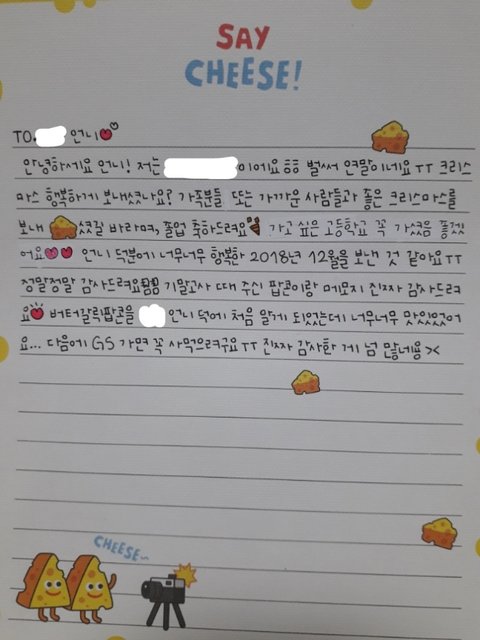 SAY
CHEESE!
TO. 언니
안녕하세요 언니! 저는 이에요 ㅎㅎ 벌써 연말이네요 ㅜㅜ 크리스
마스 행복하게 보내셨나요? 가족분들 또는 가까운 사람들과 좋은 크리스마스를
보내 셨길 바라며, 졸업 축하드려요 가고 싶은 고등학교 꼭 가셨음 좋겠
어요 언니 덕분에 너무너무 행복한 2018년 12월을 보낸 것 같아요ㅜㅜ
정말정말 감사드려요 기말고사 때 주신 팝콘이랑 메모지 진짜 감사드려
요 버터갈릭팝콘을 언니 덕에 처음 알게 되었는데 너무너무 맛있었어
요... 다음에 GS 가면 꼭 사먹으려구요 ㅜㅜ 진짜 감사한 게 넘 많네용 ><
CHEESE~